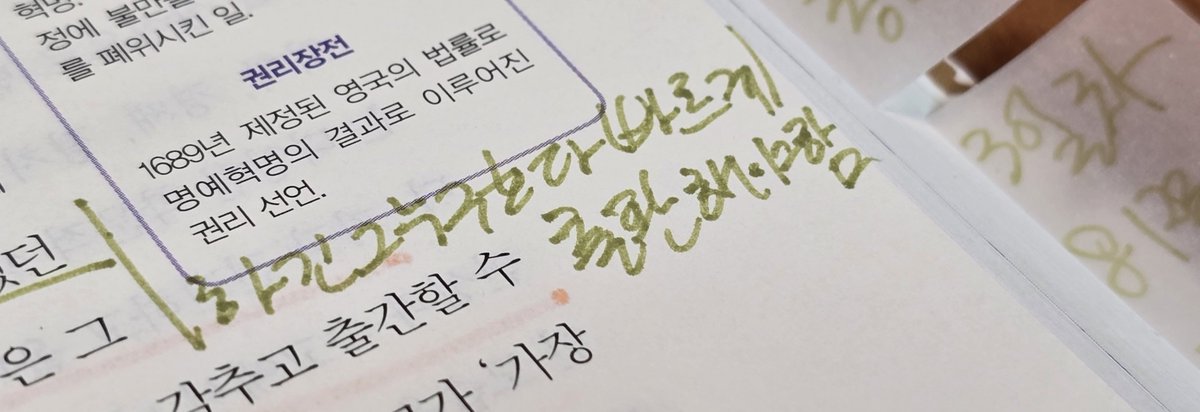 혁명.
정에 불만을
를 폐위시킨 일.
권리장전
1689년 제정된 영국의 법률로
명예혁명의 결과로 이루어진
권리 선언.
하긴 그누구보다 빠르게
출판해야함
던
은 그
감추고 출간할 수
가 ‘가장
30일차